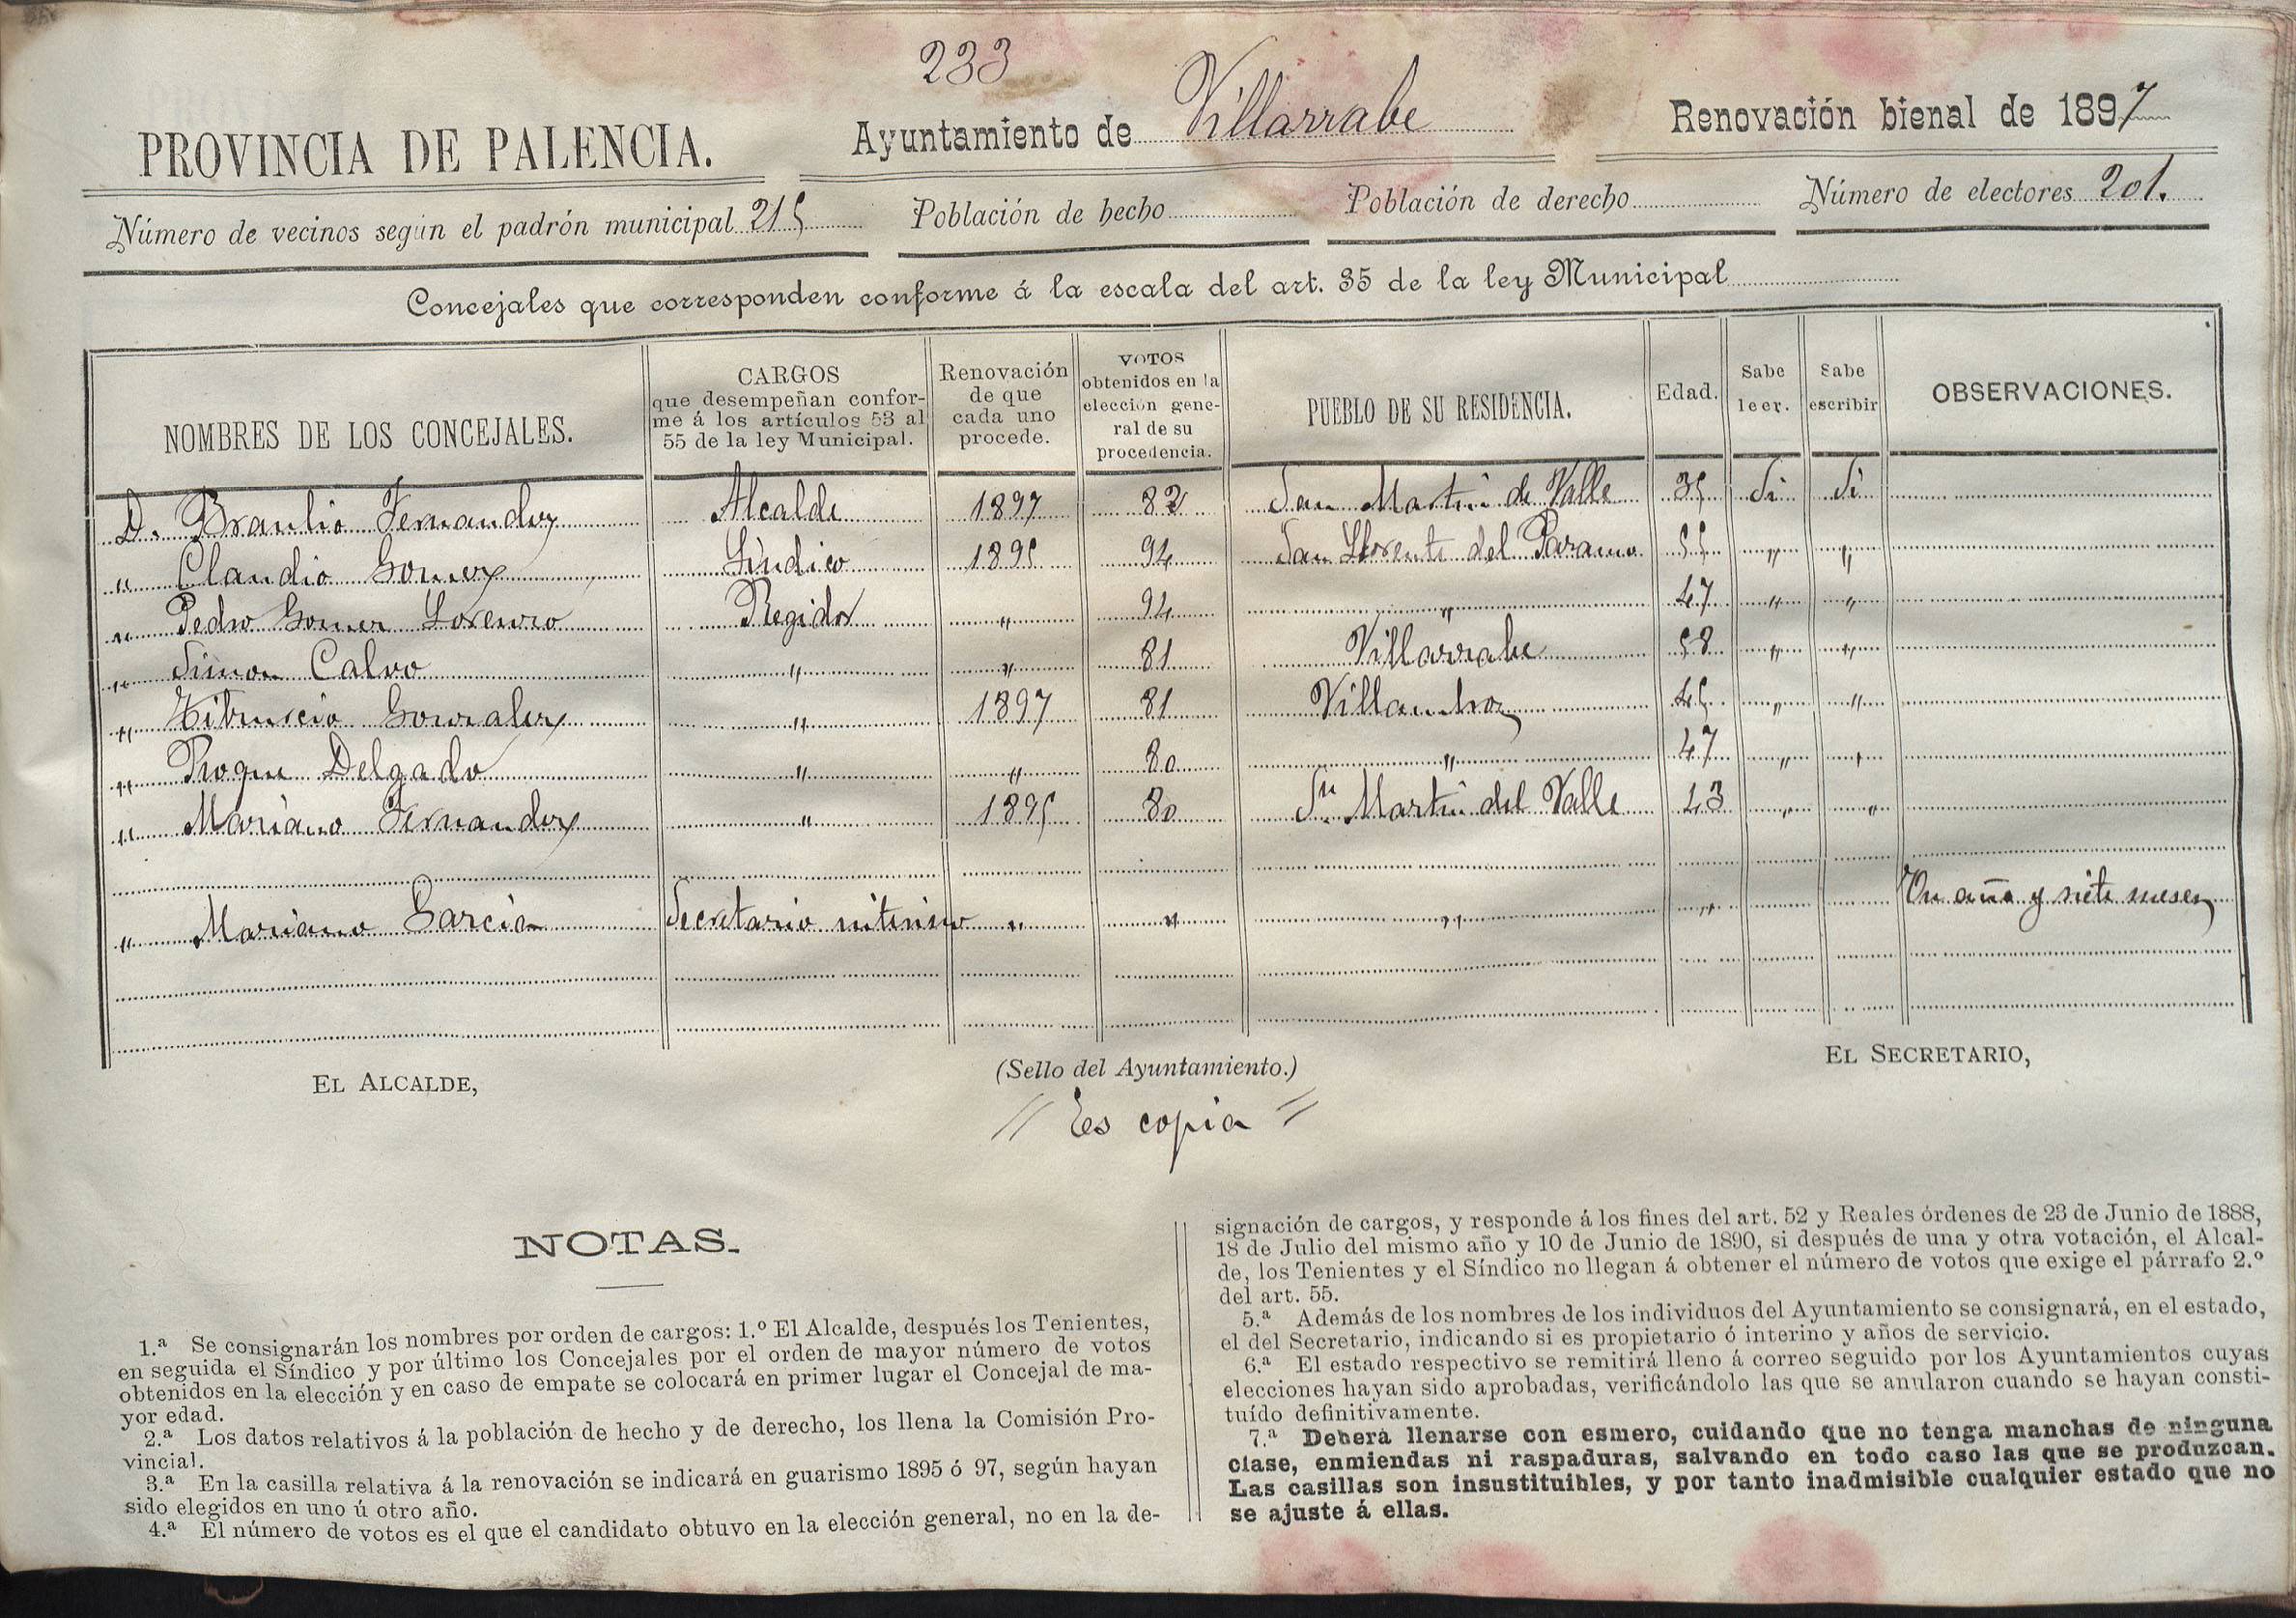 233
PROVINCIA DE PALENCIA.
Ayuntamiento de Villarrabe
Renovación bienal de 1897
Número de vecinos según el padrón municipal 215
Población de hecho
Población de derecho
Número de electores 201.
Concejales que corresponden conforme á la escala del art. 35 de la ley Municipal
NOMBRES DE LOS CONCEJALES.
CARGOS
que desempeñan confor-
me á los artículos 53 al
55 de la ley Municipal.
Renovación
de que
cada uno
procede.
VOTOS
obtenidos en la
elección gene-
ral de su
procedencia.
PUEBLO DE SU RESIDENCIA.
Edad.
Sabe
leer.
Sabe
escribir
OBSERVACIONES.
D. Braulio Fernandez Alcalde 1897 82 San Martin de Valle 35 Si Si
" Claudio Gomez Sindico 1895 94 San Llorente del Paramo 55 " "
" Pedro Gomez Lorenzo Regidor " 94 " 47 " "
" Simon Calvo " " 81 Villarrabe 58 " "
" Tiburcio Gonzalez " 1897 81 Villambroz 45 " "
" Roque Delgado " " 80 " 47 " "
" Mariano Fernandez " 1895 80 Sn. Martin del Valle 43 " "
" Mariano Garcia Secretario interino " " " " Un año y siete meses
EL ALCALDE,
(Sello del Ayuntamiento.)
EL SECRETARIO,
// Es copia //
NOTAS.
1.ª Se consignarán los nombres por orden de cargos: 1.º El Alcalde, después los Tenientes,
en seguida el Síndico y por último los Concejales por el orden de mayor número de votos
obtenidos en la elección y en caso de empate se colocará en primer lugar el Concejal de ma-
yor edad.
2.ª Los datos relativos á la población de hecho y de derecho, los llena la Comisión Pro-
vincial.
3.ª En la casilla relativa á la renovación se indicará en guarismo 1895 ó 97, según hayan
sido elegidos en uno ú otro año.
4.ª El número de votos es el que el candidato obtuvo en la elección general, no en la de-
signación de cargos, y responde á los fines del art. 52 y Reales órdenes de 23 de Junio de 1888,
18 de Julio del mismo año y 10 de Junio de 1890, si después de una y otra votación, el Alcal-
de, los Tenientes y el Síndico no llegan á obtener el número de votos que exige el párrafo 2.º
del art. 55.
5.ª Además de los nombres de los individuos del Ayuntamiento se consignará, en el estado,
el del Secretario, indicando si es propietario ó interino y años de servicio.
6.ª El estado respectivo se remitirá lleno á correo seguido por los Ayuntamientos cuyas
elecciones hayan sido aprobadas, verificándolo las que se anularon cuando se hayan consti-
tuído definitivamente.
7.ª Deberá llenarse con esmero, cuidando que no tenga manchas de ninguna
clase, enmiendas ni raspaduras, salvando en todo caso las que se produzcan.
Las casillas son insustituibles, y por tanto inadmisible cualquier estado que no
se ajuste á ellas.